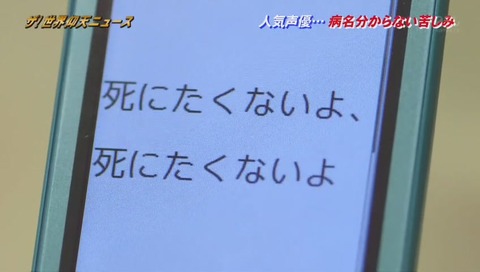 ザ!世界仰天ニュース
人気声優… 病名分からない苦しみ
死にたくないよ、
死にたくないよ